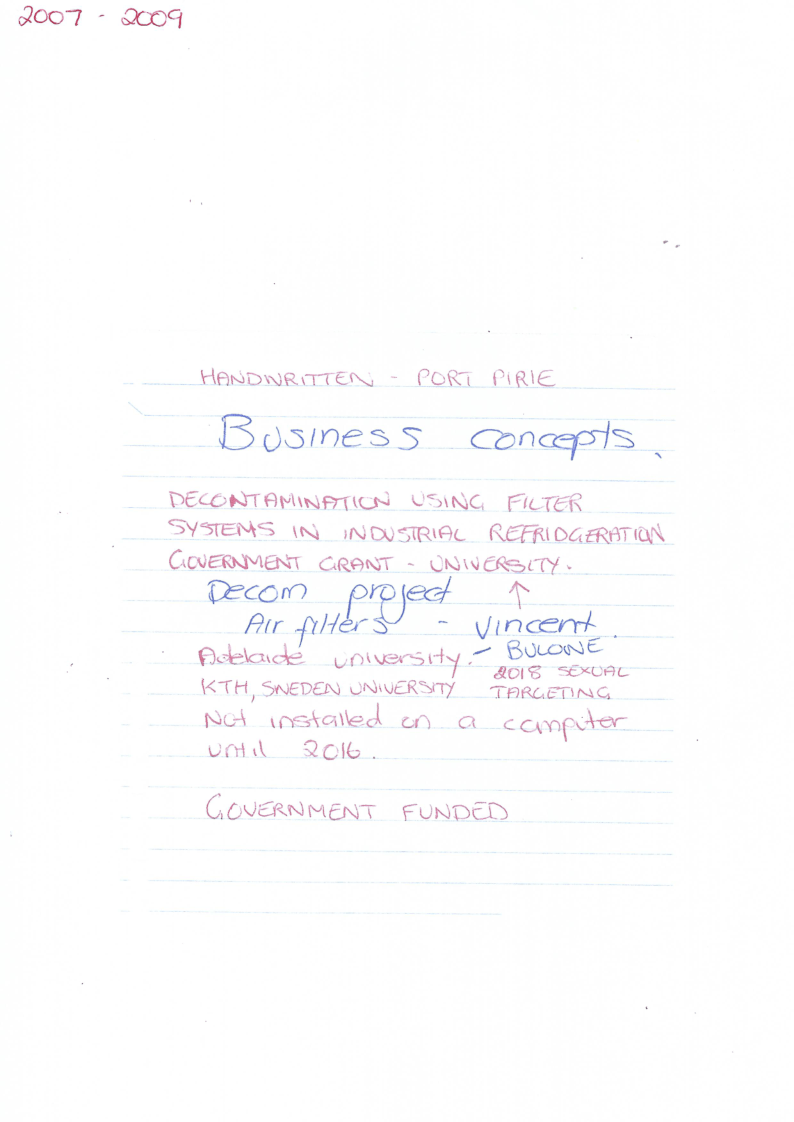 2007 - 2009
HANDWRITTEN - PORT PIRIE
Business concepts.
DECONTAMINATION USING FILTER
SYSTEMS IN INDUSTRIAL REFRIDGERATION
GOVERNMENT GRANT - UNIVERSITY.
Decom project ↑
Air filters - Vincent.
Adelaide university. - BULONE
2018 SEXUAL
KTH, SWEDEN UNIVERSITY TARGETING
Not installed on a computer
until 2016.
GOVERNMENT FUNDED